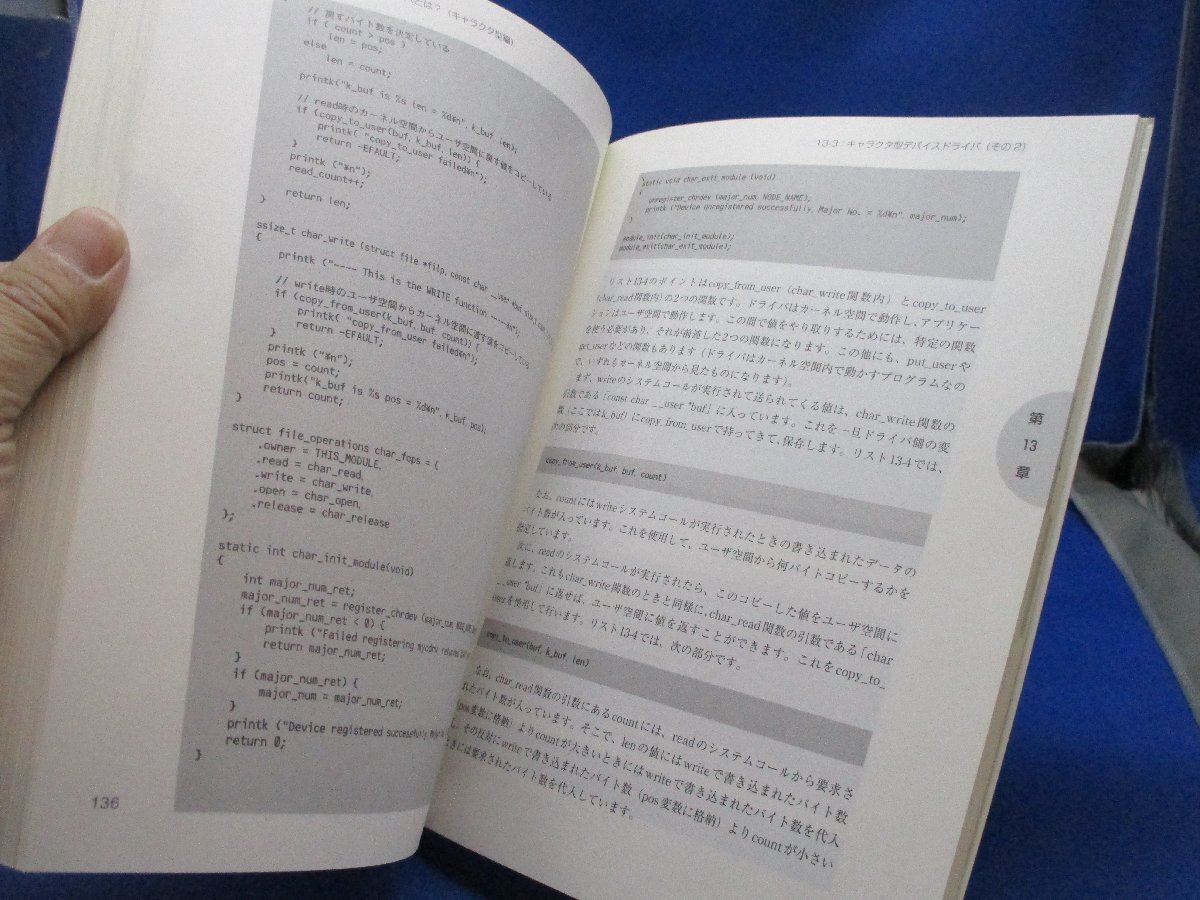 とは？（キャラクタ型編）
// 戻すバイト数を決定している
if ( count > pos )
len = pos;
else
len = count;
printk("k_buf is %s len = %d¥n", k_buf, len);
// read時のカーネル空間からユーザ空間に戻す値をコピーしている
if (copy_to_user(buf, k_buf, len)) {
printk( "copy_to_user failed¥n");
return -EFAULT;
}
printk ("¥n");
read_count++;
return len;
}
ssize_t char_write (struct file *filp, const char __user *buf,
{
printk ("---- This is the WRITE function ----¥n");
// write時のユーザ空間からカーネル空間に渡す値をコピーしている
if (copy_from_user(k_buf, buf, count)) {
printk( "copy_from_user failed¥n");
return -EFAULT;
}
printk ("¥n");
pos = count;
printk("k_buf is %s pos = %d¥n", k_buf, pos);
return count;
}
struct file_operations char_fops = {
.owner = THIS_MODULE,
.read = char_read,
.write = char_write,
.open = char_open,
.release = char_release
};
static int char_init_module(void)
{
int major_num_ret;
major_num_ret = register_chrdev (major_num,
if (major_num_ret < 0) {
printk ("Failed registering mycdrv returned
return major_num_ret;
}
if (major_num_ret) {
major_num = major_num_ret;
}
printk ("Device registered successfully.
return 0;
}
136
13-3：キャラクタ型デバイスドライバ（その2）
static void char_exit_module (void)
{
unregister_chrdev (major_num, NODE_NAME);
printk ("Device unregistered successfully. Major No. = %d¥n", major_num);
}
module_init(char_init_module);
module_exit(char_exit_module);
リスト13-4のポイントはcopy_from_user（char_write関数内）とcopy_to_user
（char_read関数内）の2つの関数です。ドライバはカーネル空間で動作し、アプリケー
ションはユーザ空間で動作します。この間で値をやり取りするためには、特定の関数
を使う必要があり、それが前述した2つの関数になります。この他にも、put_userや
get_userなどの関数もあります（ドライバはカーネル空間内で動かすプログラムなの
で、いずれもカーネル空間から見たものになります）。
まず、writeのシステムコールが実行されて送られてくる値は、char_write関数の
引数である「const char __user *buf」に入っています。これを一旦ドライバ側の変
数（ここではk_buf）にcopy_from_userで持ってきて、保存します。リスト13-4では、
次の部分です。
copy_from_user(k_buf, buf, count)
なお、countにはwriteシステムコールが実行されたときの書き込まれたデータの
バイト数が入っています。これを使用して、ユーザ空間から何バイトコピーするかを
指定しています。
次に、readのシステムコールが実行されたら、このコピーした値をユーザ空間に
返します。これもchar_write関数のときと同様に、char_read関数の引数である「char
__user *buf」に返せば、ユーザ空間に値を返すことができます。これをcopy_to_
userを使用して行います。リスト13-4では、次の部分です。
copy_to_user(buf, k_buf, len)
なお、char_read関数の引数にあるcountには、readのシステムコールから要求さ
れたバイト数が入っています。そこで、lenの値にはwriteで書き込まれたバイト数
（pos変数に格納）よりcountが大きいときにはwriteで書き込まれたバイト数を代入
し、その反対にwriteで書き込まれたバイト数（pos変数に格納）よりcountが小さい
ときには要求されたバイト数を代入しています。
第
13
章